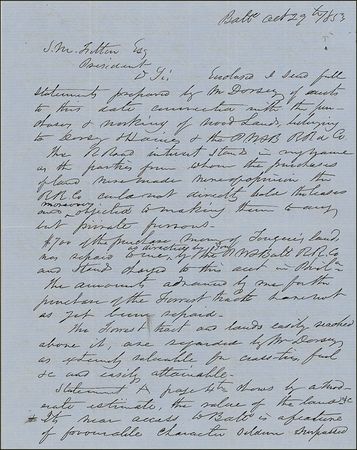 Balto Oct 29th 1853
S. M. Felton Esq
President
D Sir Enclosed I send full
statements prepared by Mr Dorsey of acts
to this date connection with the pur-
chase & working of wood Land, belonging
to Dorsey & Haines & the P. W & B R R Co.
The R Road interest stands in my name
as the parties from whom the purchases
of land were made were of opinion the
R R Co could not directly hold the leases
and moreover objected to making them to any
but private persons.
$700 of the purchase money of Youngs's land
was repaid to me, as directed by you by the P W & Balt R R Co
and stands charged to this acct in Phila
The amounts advanced by me for the
purchase of the Forrest tracts have not
as yet been repaid.
The Forrest tract and lands easily reached
above it, are regarded by Mr Dorsey
as extremely valuable for cross-ties, fuel
&c and easily attainable.
Statement A page 6 to shows by a mod-
erate estimate, the value of the land &c
Its near access to Balto is a feature
of favourable character seldom surpassed